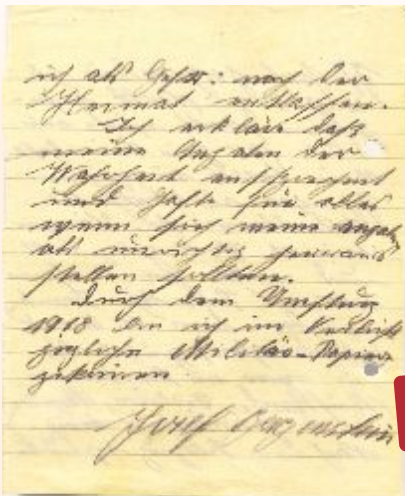 ich als Gefr: nach der
Heimat entlassen.
Ich erkläre daß
meine Angaben der
Wahrheit entsprechend
und hafte für alles
wenn sich meine angaben
als unrichtig heraus
stellen sollten.
Durch dem Umsturz
1918 bin ich im Verlust
jeglicher Militär-Papiere
Josef